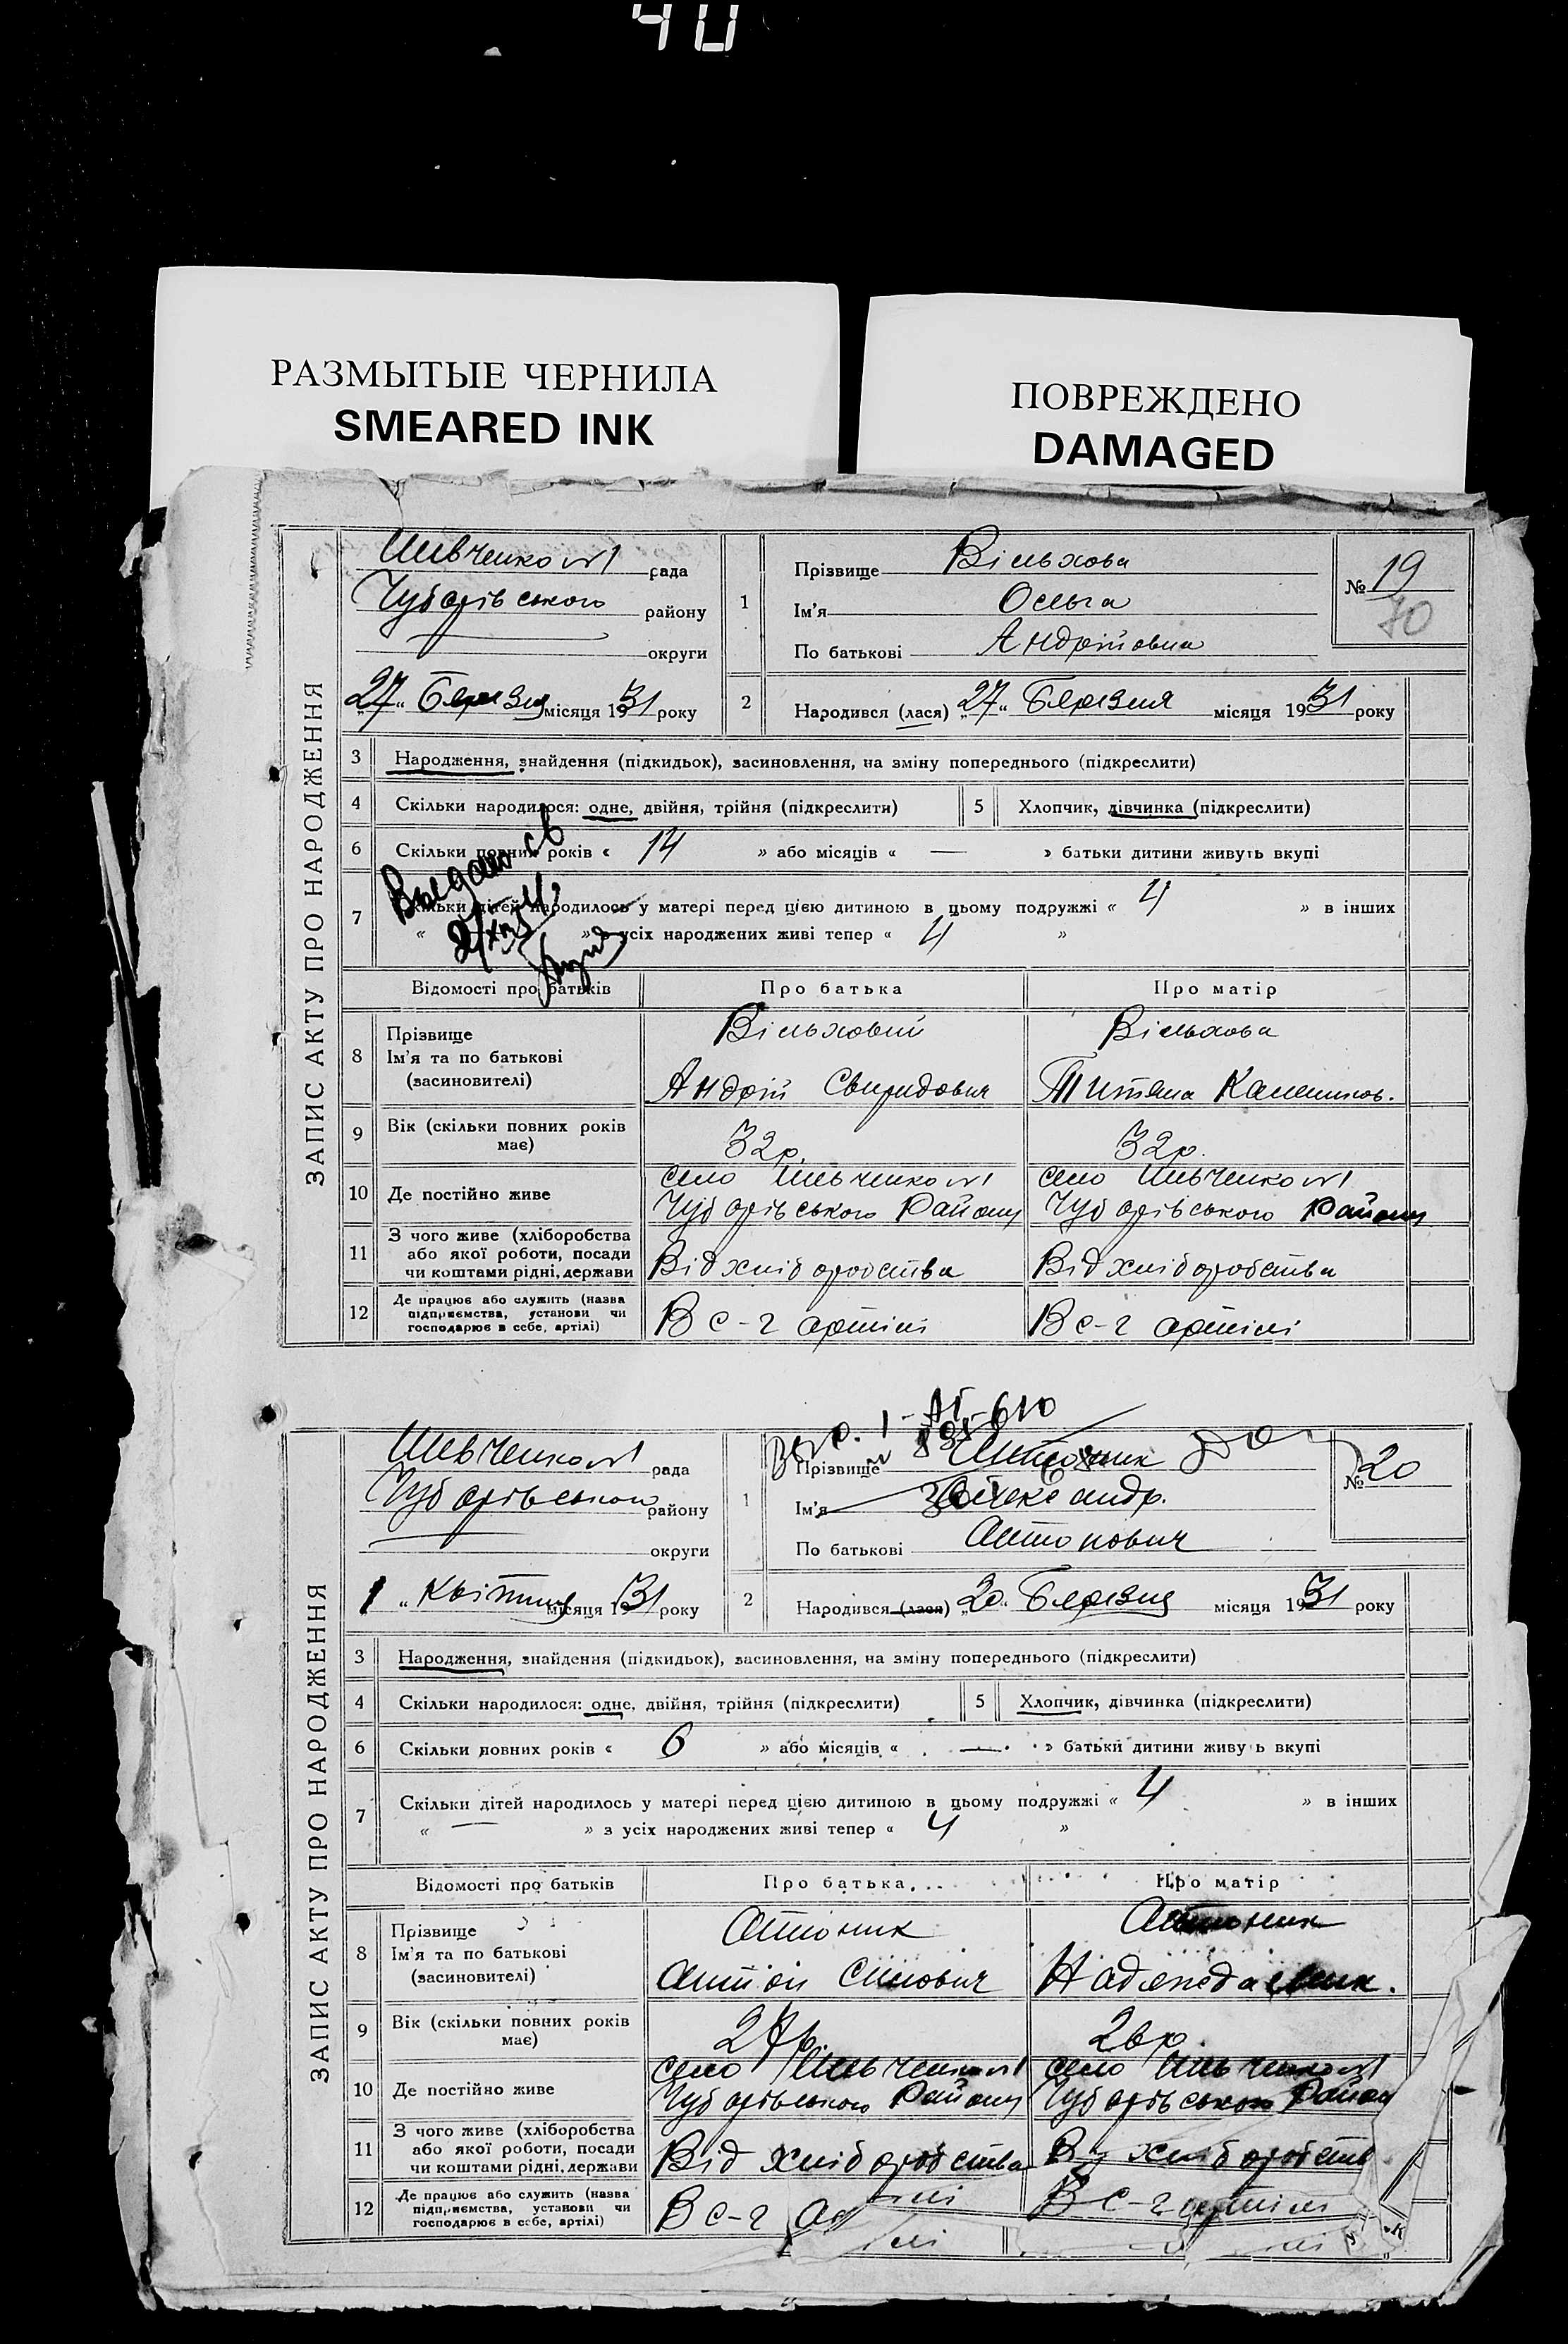 40
РАЗМЫТЫЕ ЧЕРНИЛА
SMEARED INK
ПОВРЕЖДЕНО
DAMAGED
ЗАПИС АКТУ ПРО НАРОДЖЕННЯ
Шевченко №1 рада
Чубарівського району
округи
„27“ Березня місяця 1931 року
1 Прізвище Вільхова
Ім'я Ольга
По батькові Андрійовна
№ 19
70
2 Народився (лася) „27“ Березня місяця 1931 року
3 Народження, знайдення (підкидьок), засиновлення, на зміну попереднього (підкреслити)
4 Скільки народилося: одне, двійня, трійня (підкреслити) 5 Хлопчик, дівчинка (підкреслити)
6 Скільки повних років « 14 » або місяців « — » батьки дитини живуть вкупі
7 Скільки дітей народилось у матері перед цією дитиною в цьому подружжі « 4 » в інших
« » з усіх народжених живі тепер « 4 »
Відомості про батьків Про батька Про матір
8 Прізвище
Ім'я та по батькові
(засиновителі)
Вільховий
Андрій Свиридович
Вільхова
Титяна
9 Вік (скільки повних років має) 32р. 32р.
10 Де постійно живе
село Шевченко №1
Чубарівського Району
село Шевченко №1
Чубарівського Району
11 З чого живе (хліборобства
або якої роботи, посади
чи коштами рідні, держави
Від хліборобства Від хліборобства
12 Де працює або служить (назва
підприємства, установи чи
господарює в себе, артілі)
В с-г артілі В с-г артілі
ЗАПИС АКТУ ПРО НАРОДЖЕННЯ
Шевченко №1 рада
Чубарівського району
округи
1 “ Квітня місяця 1931 року
1 Прізвище
Ім'я Олександр.
По батькові Антонович
№ 20
2 Народився (лася) „20“ Березня місяця 1931 року
3 Народження, знайдення (підкидьок), засиновлення, на зміну попереднього (підкреслити)
4 Скільки народилося: одне, двійня, трійня (підкреслити) 5 Хлопчик, дівчинка (підкреслити)
6 Скільки повних років « 6 » або місяців « — » батьки дитини живуь вкупі
7 Скільки дітей народилось у матері перед цією дитиною в цьому подружжі « 4 » в інших
« — » з усіх народжених живі тепер « 4 »
Відомості про батьків Про батька Про матір
8 Прізвище
Ім'я та по батькові
(засиновителі)
Антон
Надежда
9 Вік (скільки повних років має) 26р.
10 Де постійно живе
село Шевченко №1
Чубарівського Району
село Шевченко №1
Чубарівського Район
11 З чого живе (хліборобства
або якої роботи, посади
чи коштами рідні, держави
Від хліборобства хліборобств
12 Де працює або служить (назва
підприємства, установи чи
господарює в себе, артілі)
В с-г В с-г артілі